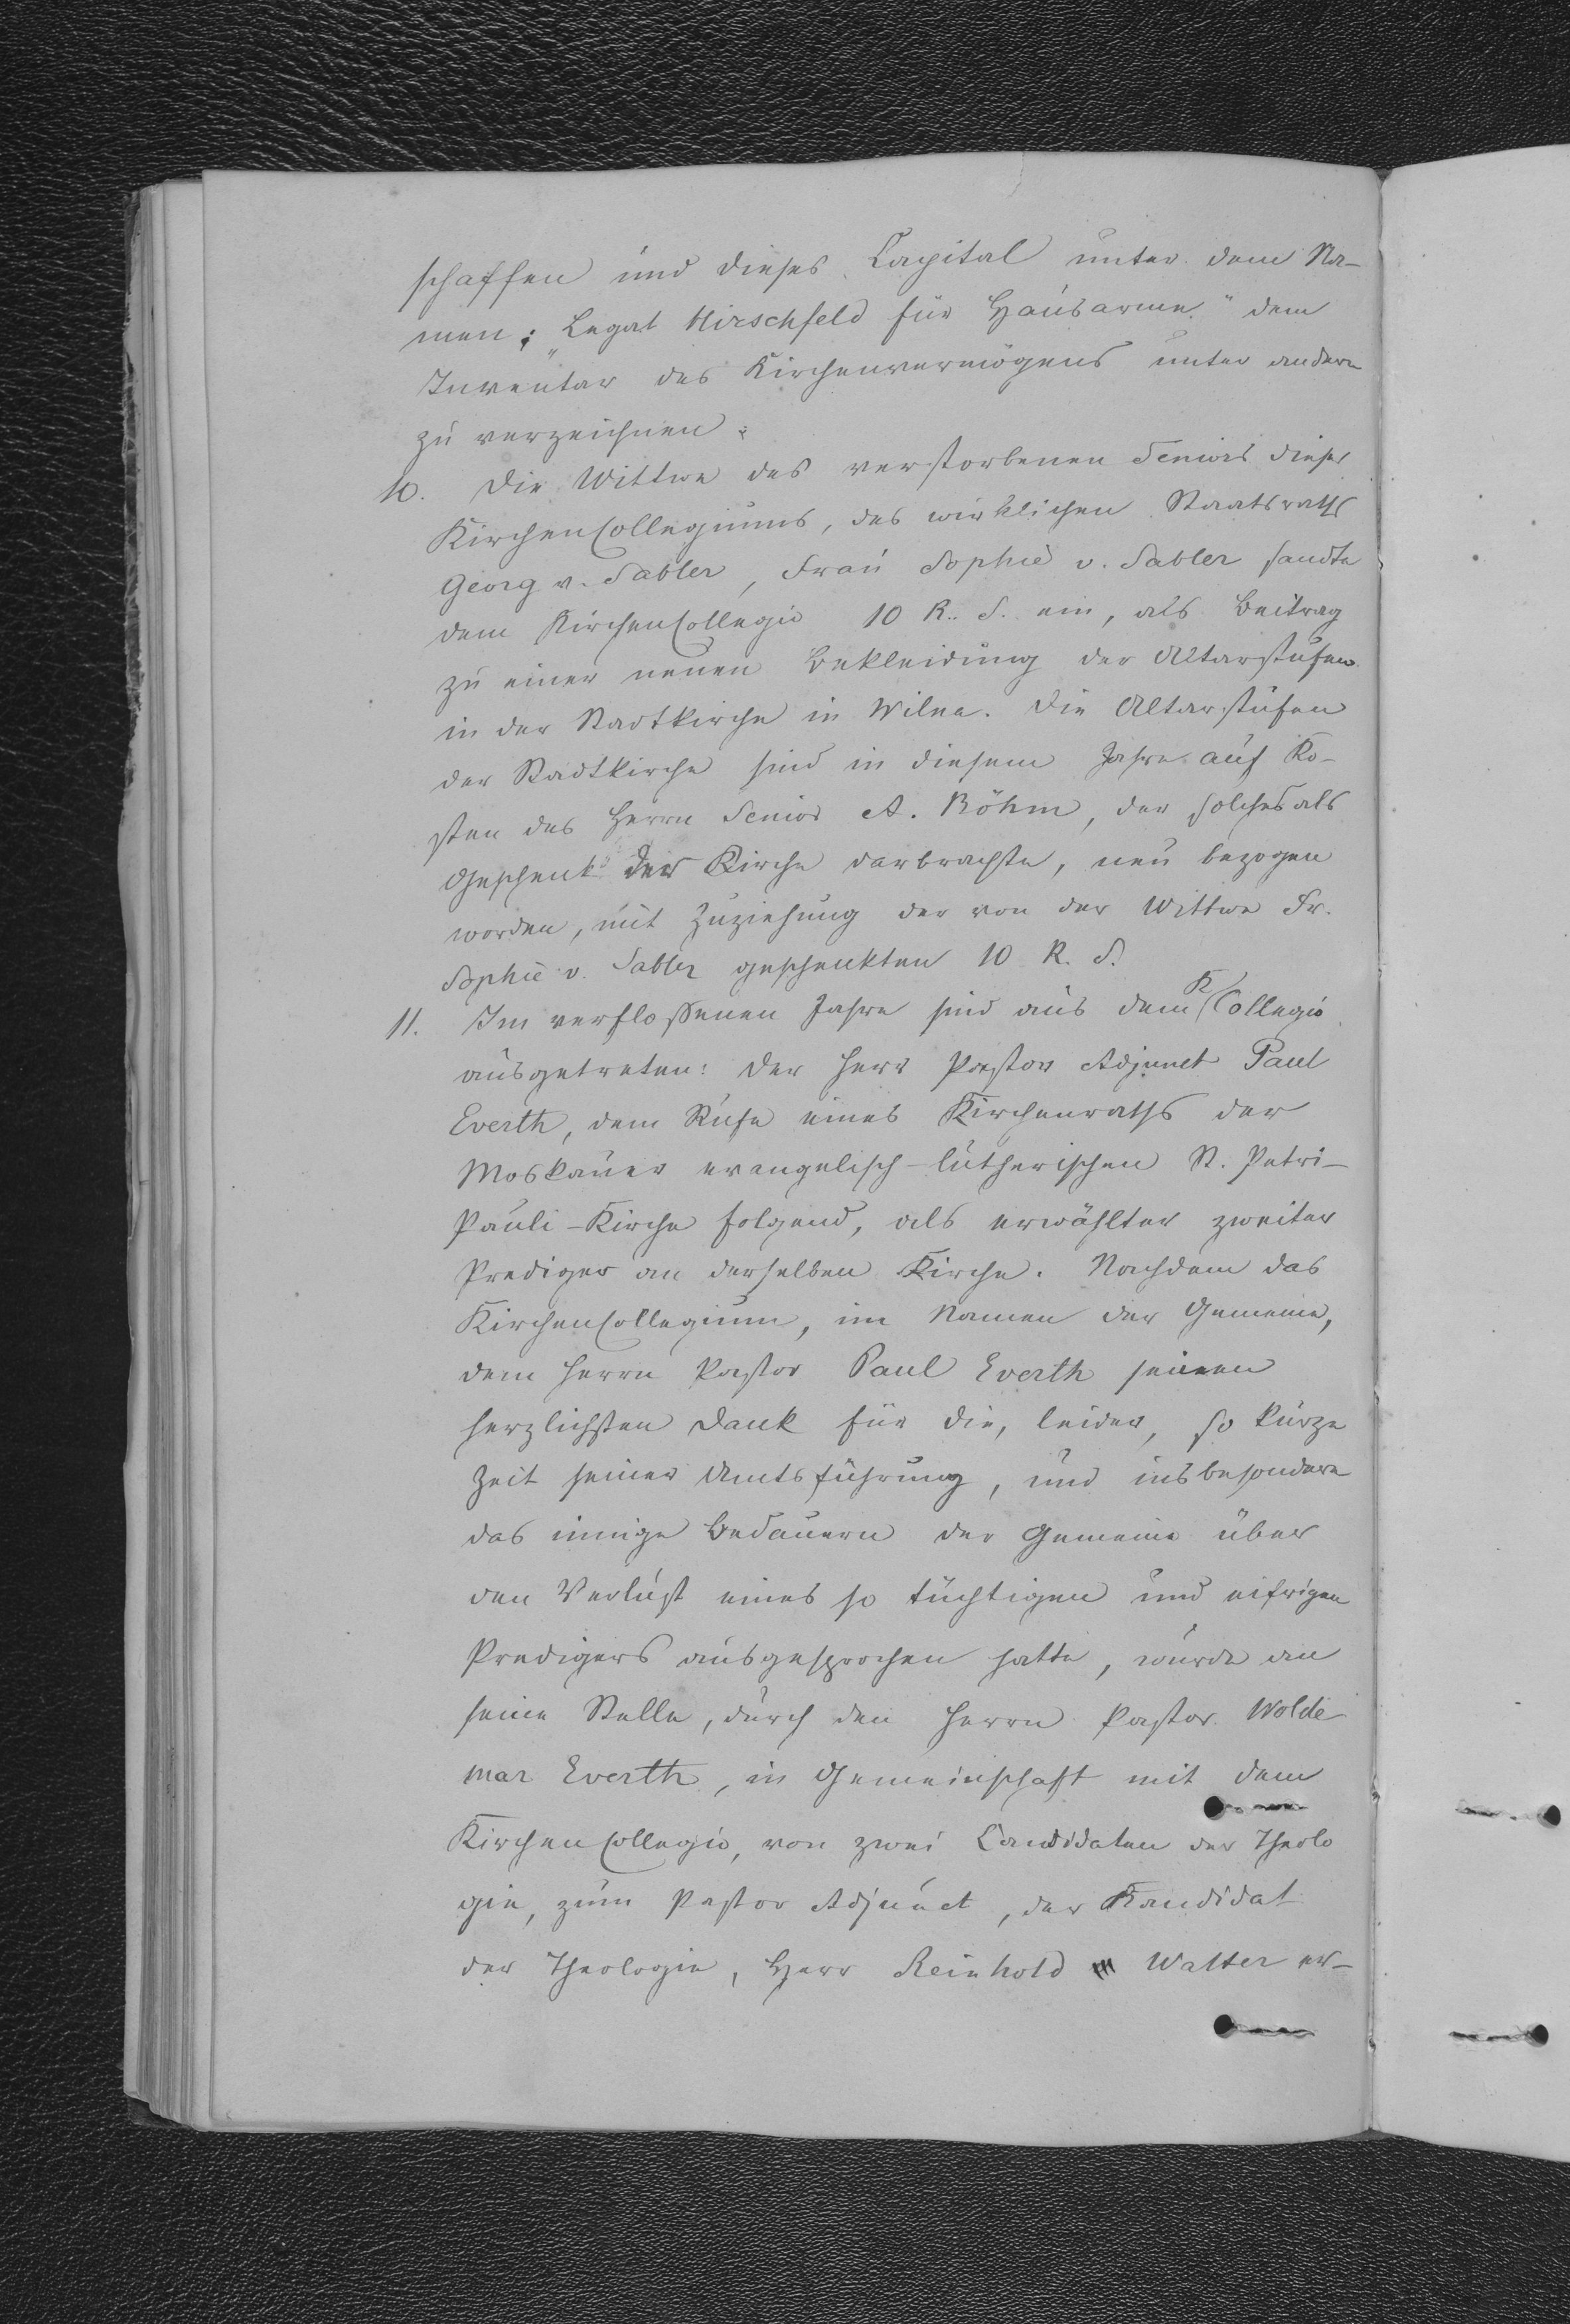 schaffen und dieses Capital unter dem Na-
men: „Legat Hirschfeld für Hausarme" dem
Inventar des Kirchenvermögens unter andern
zu verzeichnen.
10. Die Wittwe des verstorbenen Seniors dieses
KirchenCollegiums, des wirklichen Staatsraths
Georg v. Sabler, Frau Sophie v. Sabler sandte
dem KirchenCollegio 10 R. S. ein, als Beitrag
zu einer neuen Bekleidung der Altarstufen
in der Stadtkirche in Wilna. Die Altarstufen
der Stadtkirche sind in diesem Jahre auf Ko-
sten des Herrn Senior A. Böhm, der solches als
Geschenk der Kirche darbrachte, neu bezogen
worden, mit Zuziehung der von der Wittwe Fr.
Sophie v. Sabler geschenkten 10 R. S.
11. Im verfloßenen Jahre sind aus dem K Collegio
ausgetreten: der Herr Pastor Adjunct Paul
Everth, dem Rufe eines Kirchenraths der
Moskauer evangelisch-lutherischen St. Petri-
Pauli-Kirche folgend, als erwählter zweiter
Prediger an derselben Kirche. Nachdem das
KirchenCollegium, im Namen der Gemeine,
dem Herrn Pastor Paul Everth seinen
herzlichsten Dank für die, leider, so kurze
Zeit seiner Amtsführung, und insbesondere
das innige Bedauern der Gemeine über
den Verlust eines so tüchtigen und eifrigen
Predigers ausgesprochen hatte, wurde an
seine Stelle, durch den Herrn Pastor Wolde
mar Everth, in Gemeinschaft mit dem
KirchenCollegio, von zwei Candidaten der Theolo
gie, zum Pastor Adjunct, der Kandidat
der Theologie, Herr Reinhold Walter er-